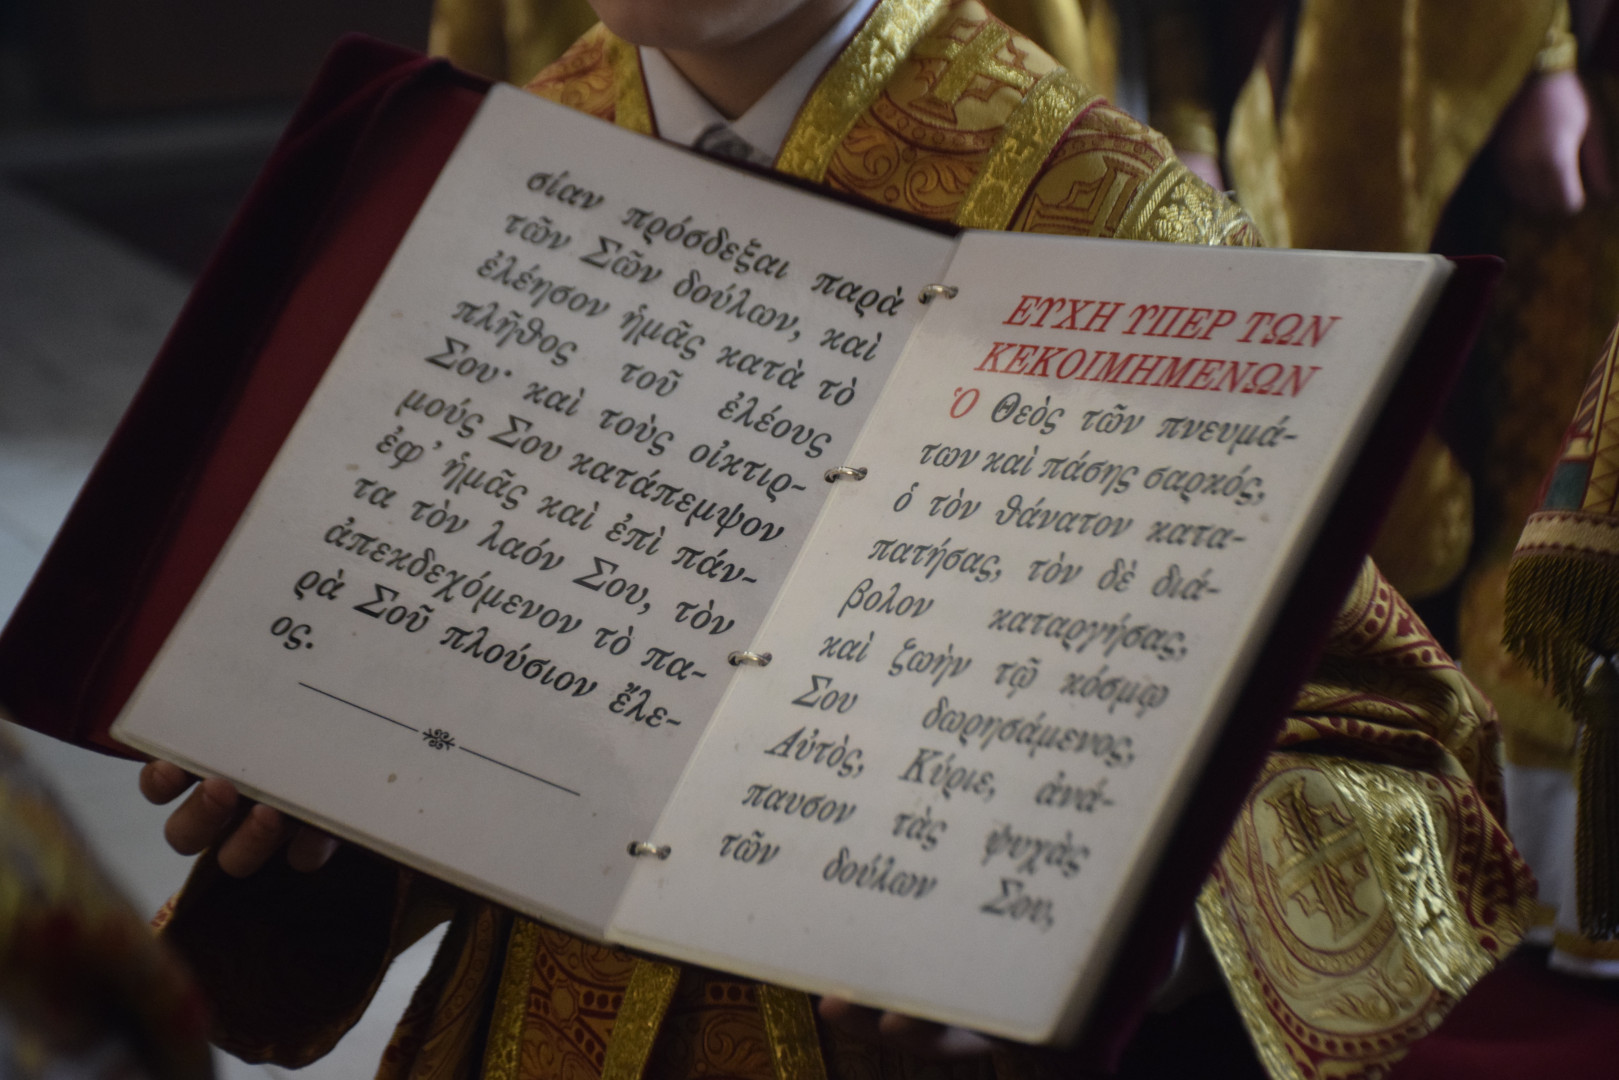 σίαν πρόσδεξαι παρὰ
τῶν Σῶν δούλων, καὶ
ἐλέησον ἡμᾶς κατὰ τὸ
πλῆθος τοῦ ἐλέους
Σου· καὶ τοὺς οἰκτιρ-
μούς Σου κατάπεμψον
ἐφ’ ἡμᾶς καὶ ἐπὶ πάν-
τα τὸν λαόν Σου, τὸν
ἀπεκδεχόμενον τὸ πα-
ρὰ Σοῦ πλούσιον ἔλε-
ος.
ΕΥΧΗ ΥΠΕΡ ΤΩΝ
ΚΕΚΟΙΜΗΜΕΝΩΝ
Ὁ Θεὸς τῶν πνευμά-
των καὶ πάσης σαρκός,
ὁ τὸν θάνατον κατα-
πατήσας, τὸν δὲ διά-
βολον καταργήσας,
καὶ ζωὴν τῷ κόσμῳ
Σου δωρησάμενος,
Αὐτὸς, Κύριε, ἀνά-
παυσον τὰς ψυχὰς
τῶν δούλων Σου,